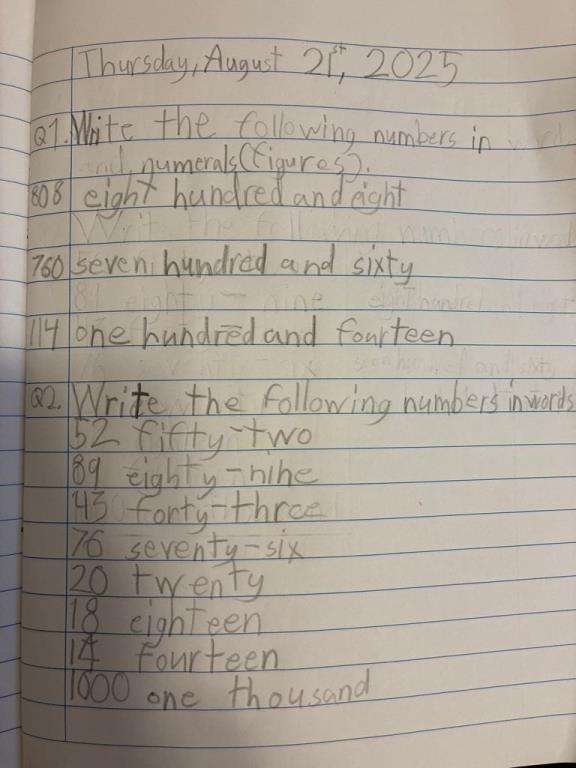 Thursday, August 21st, 2025
Q1. Write the following numbers in
numerals (figures).
808 eight hundred and eight
760 seven hundred and sixty
114 one hundred and fourteen
Q2. Write the following numbers in words
52 fifty-two
89 eighty-nine
43 forty-three
76 seventy-six
20 twenty
18 eighteen
14 fourteen
1000 one thousand